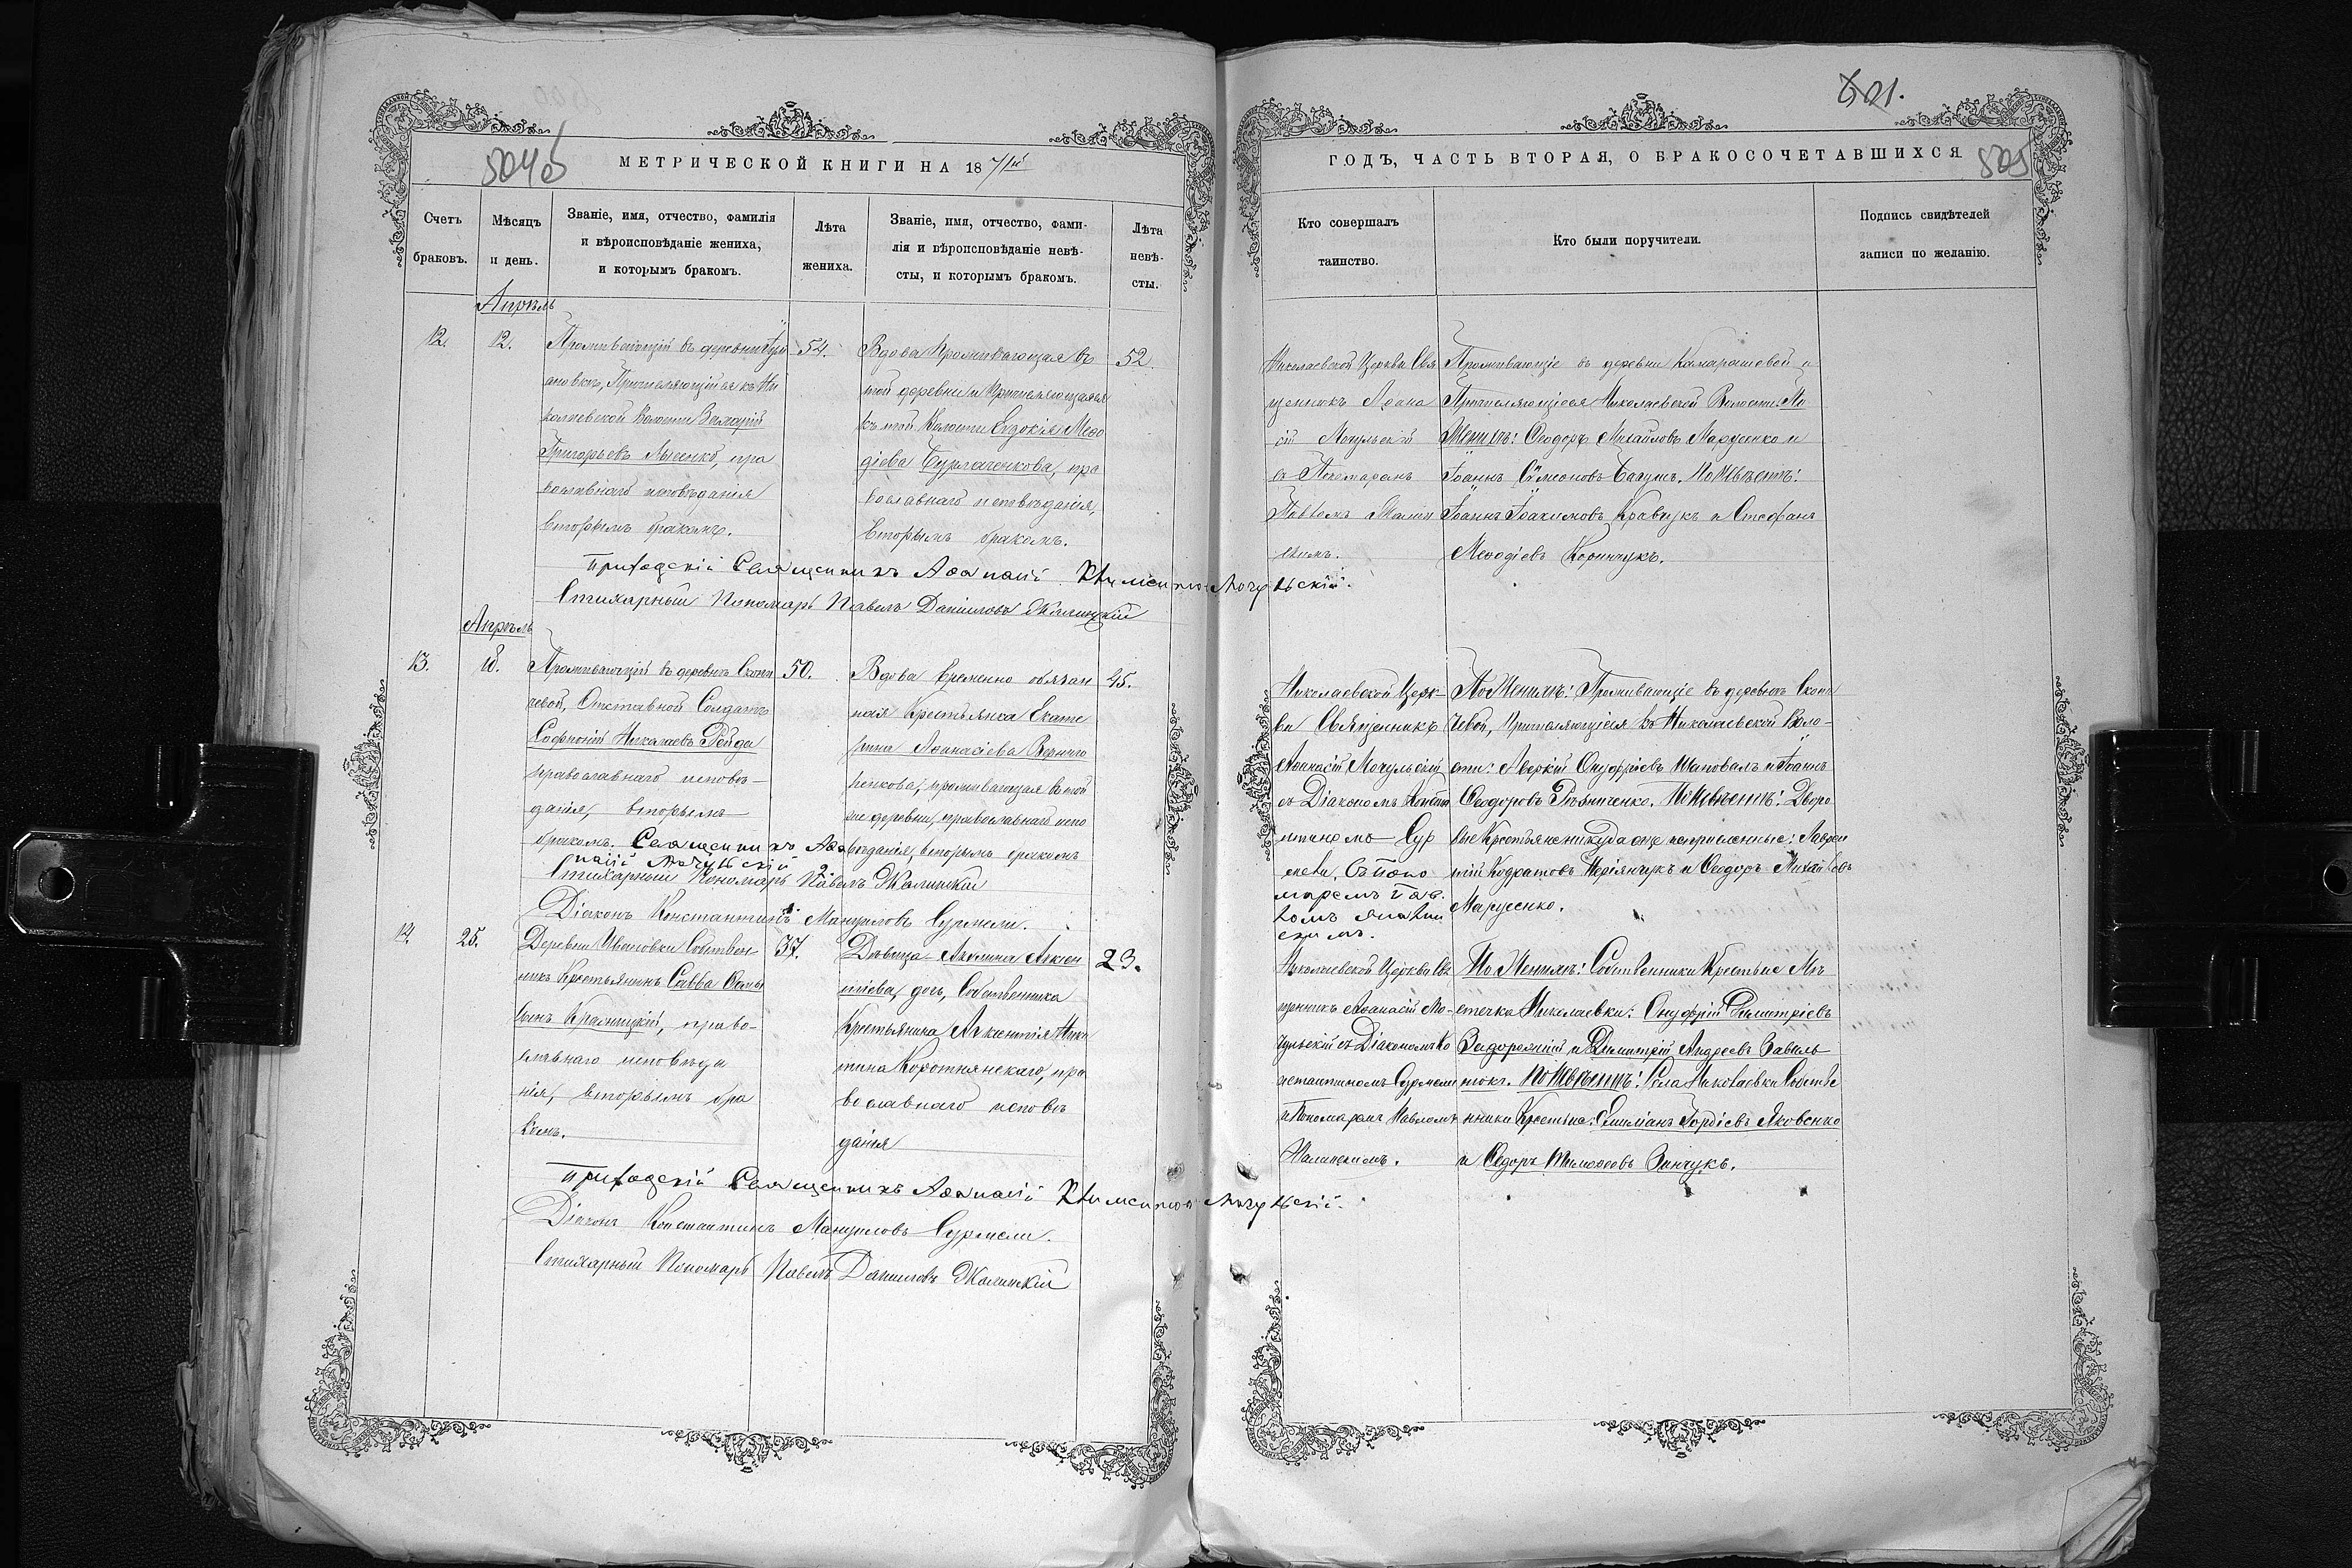 504об
МЕТРИЧЕСКОЙ КНИГИ НА 1871й
Счетъ
браковъ.
Мѣсяцъ
и день.
Званіе, имя, отчество, фамилія
и вѣроисповѣданіе жениха,
и которымъ бракомъ.
Лѣта
жениха.
Званіе, имя, отчество, фами-
лія и вѣроисповѣданіе невѣ-
сты, и которымъ бракомъ.
Лѣта
невѣ-
сты.
Апрѣль
12.
12.
Проживающій въ деревни
ановки, Причисляющійся къ Ни
колаевской Волости Захарій
Григорьевъ Лысенко, пра
вославнаго исповѣданія
вторымъ бракомъ.
54.
Вдова Проживающая въ
той деревни и Причисляющаяся
къ той Волости Евдокія Меѳо
діева Бурлаченкова, пра
вославнаго исповѣданія,
вторымъ бракомъ.
52.
Приходскій Священникъ Аѳанасій Климентов Мочульскій.
Стихарный Пономарь Павелъ Даниловъ Жалинскій
Апрѣль
13.
18.
Проживающій въ деревнѣ Скоти
чевой, Отставной Солдатъ
Софроній Николаевъ Рейда
православнаго исповѣ-
данія, вторымъ
бракомъ.
50.
Вдова временно обязан
ная Крестьянка Екате
рина Аѳанасіева
пенкова, проживающая въ той
же деревни, православнаго испо
вѣданія, вторымъ бракомъ
45.
Священникъ Аѳа
насій Мочульскій
Стихарный Пономарь Павелъ Жалинскій
Діаконъ Константинъ Мануиловъ Сурмели.
14.
25.
Деревни Ивановки Собствен
никъ Крестьянинъ Савва
Краницкій, право-
славнаго исповѣда
нія, вторымъ бра
комъ.
37.
Дѣвица Акилина Аѵксен
тіева, дочь, Собственника
Крестьянина Аѵксентія Ники
тина Коротнянскаго, пра
вославнаго исповѣ
данія
23.
Приходскій Священникъ Аѳанасій Климентов Мочульскій.
Діаконъ Константинъ Мануиловъ Сурмели.
Стихарный Пономарь Павелъ Даниловъ Жалинскій
501.
ГОДЪ, ЧАСТЬ ВТОРАЯ, О БРАКОСОЧЕТАВШИХСЯ
505
Кто совершалъ
таинство.
Кто были поручители.
Подпись свидѣтелей
записи по желанію.
Николаевской Церкви Свя
щенникъ Аѳана
сій Мочульскій
съ Пономаремъ
Павломъ Жалин
скимъ.
Проживающіе въ деревни Камарашовой и
Причисляющіеся Николаевской Волости. По
Женихѣ: Ѳеодоръ Михайловъ Марусенко и
Іоаннъ Симеоновъ Бачунъ. По Невѣстѣ:
Іоаннъ Іоакимовъ Кравчукъ и Стефанъ
Меѳодіевъ Коринчукъ.
Николаевской Церк-
ви Священникъ
Аѳанасій Мочульскій
съ Діакономъ Конста
нтиномъ Сур
мели, съ поно
маремъ Пав
ломъ Жалин
скимъ.
По Женихѣ: Проживающіе въ деревнѣ Скоти
чевой, Причисляющіеся къ Николаевской Воло-
сти: Аверкій Онуфріевъ Шаповалъ и Іоаннъ
Ѳеодоровъ Рѣзниченко. По Невѣстѣ: Дворо
вые Крестьяне никуда еще непричисленные: Лаврен
тій Кодратовъ и Ѳеодоръ Михайловъ
Марусенко.
Николаевской Церкви Свя
щенникъ Аѳанасій Мо-
чульскій съ Діакономъ Ко
нстантиномъ Сурмели
и Пономаремъ Павломъ
Жалинскимъ.
По Женихѣ: Собственники Крестьяне Мѣ
стечка Николаевки: Онуфрій Димитріевъ
Задорожній и Димитрій Андреевъ Завиль
нюкъ. По Невѣстѣ: Села Николаевки Собстве
нники Крестьяне: Емиліанъ Гордіевъ Яковенко
и Ѳедоръ Тимоѳеевъ Зинчукъ.